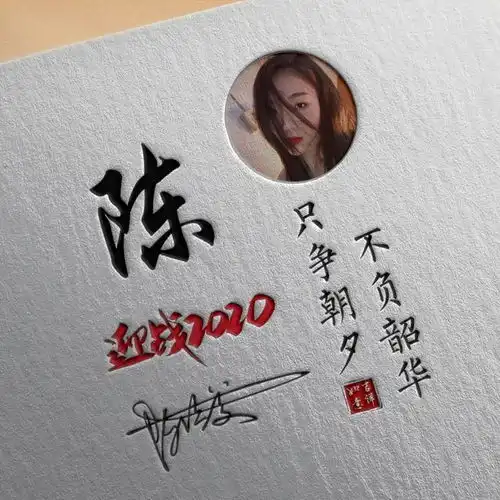 陈
迎战2020
只争朝夕
不负韶华